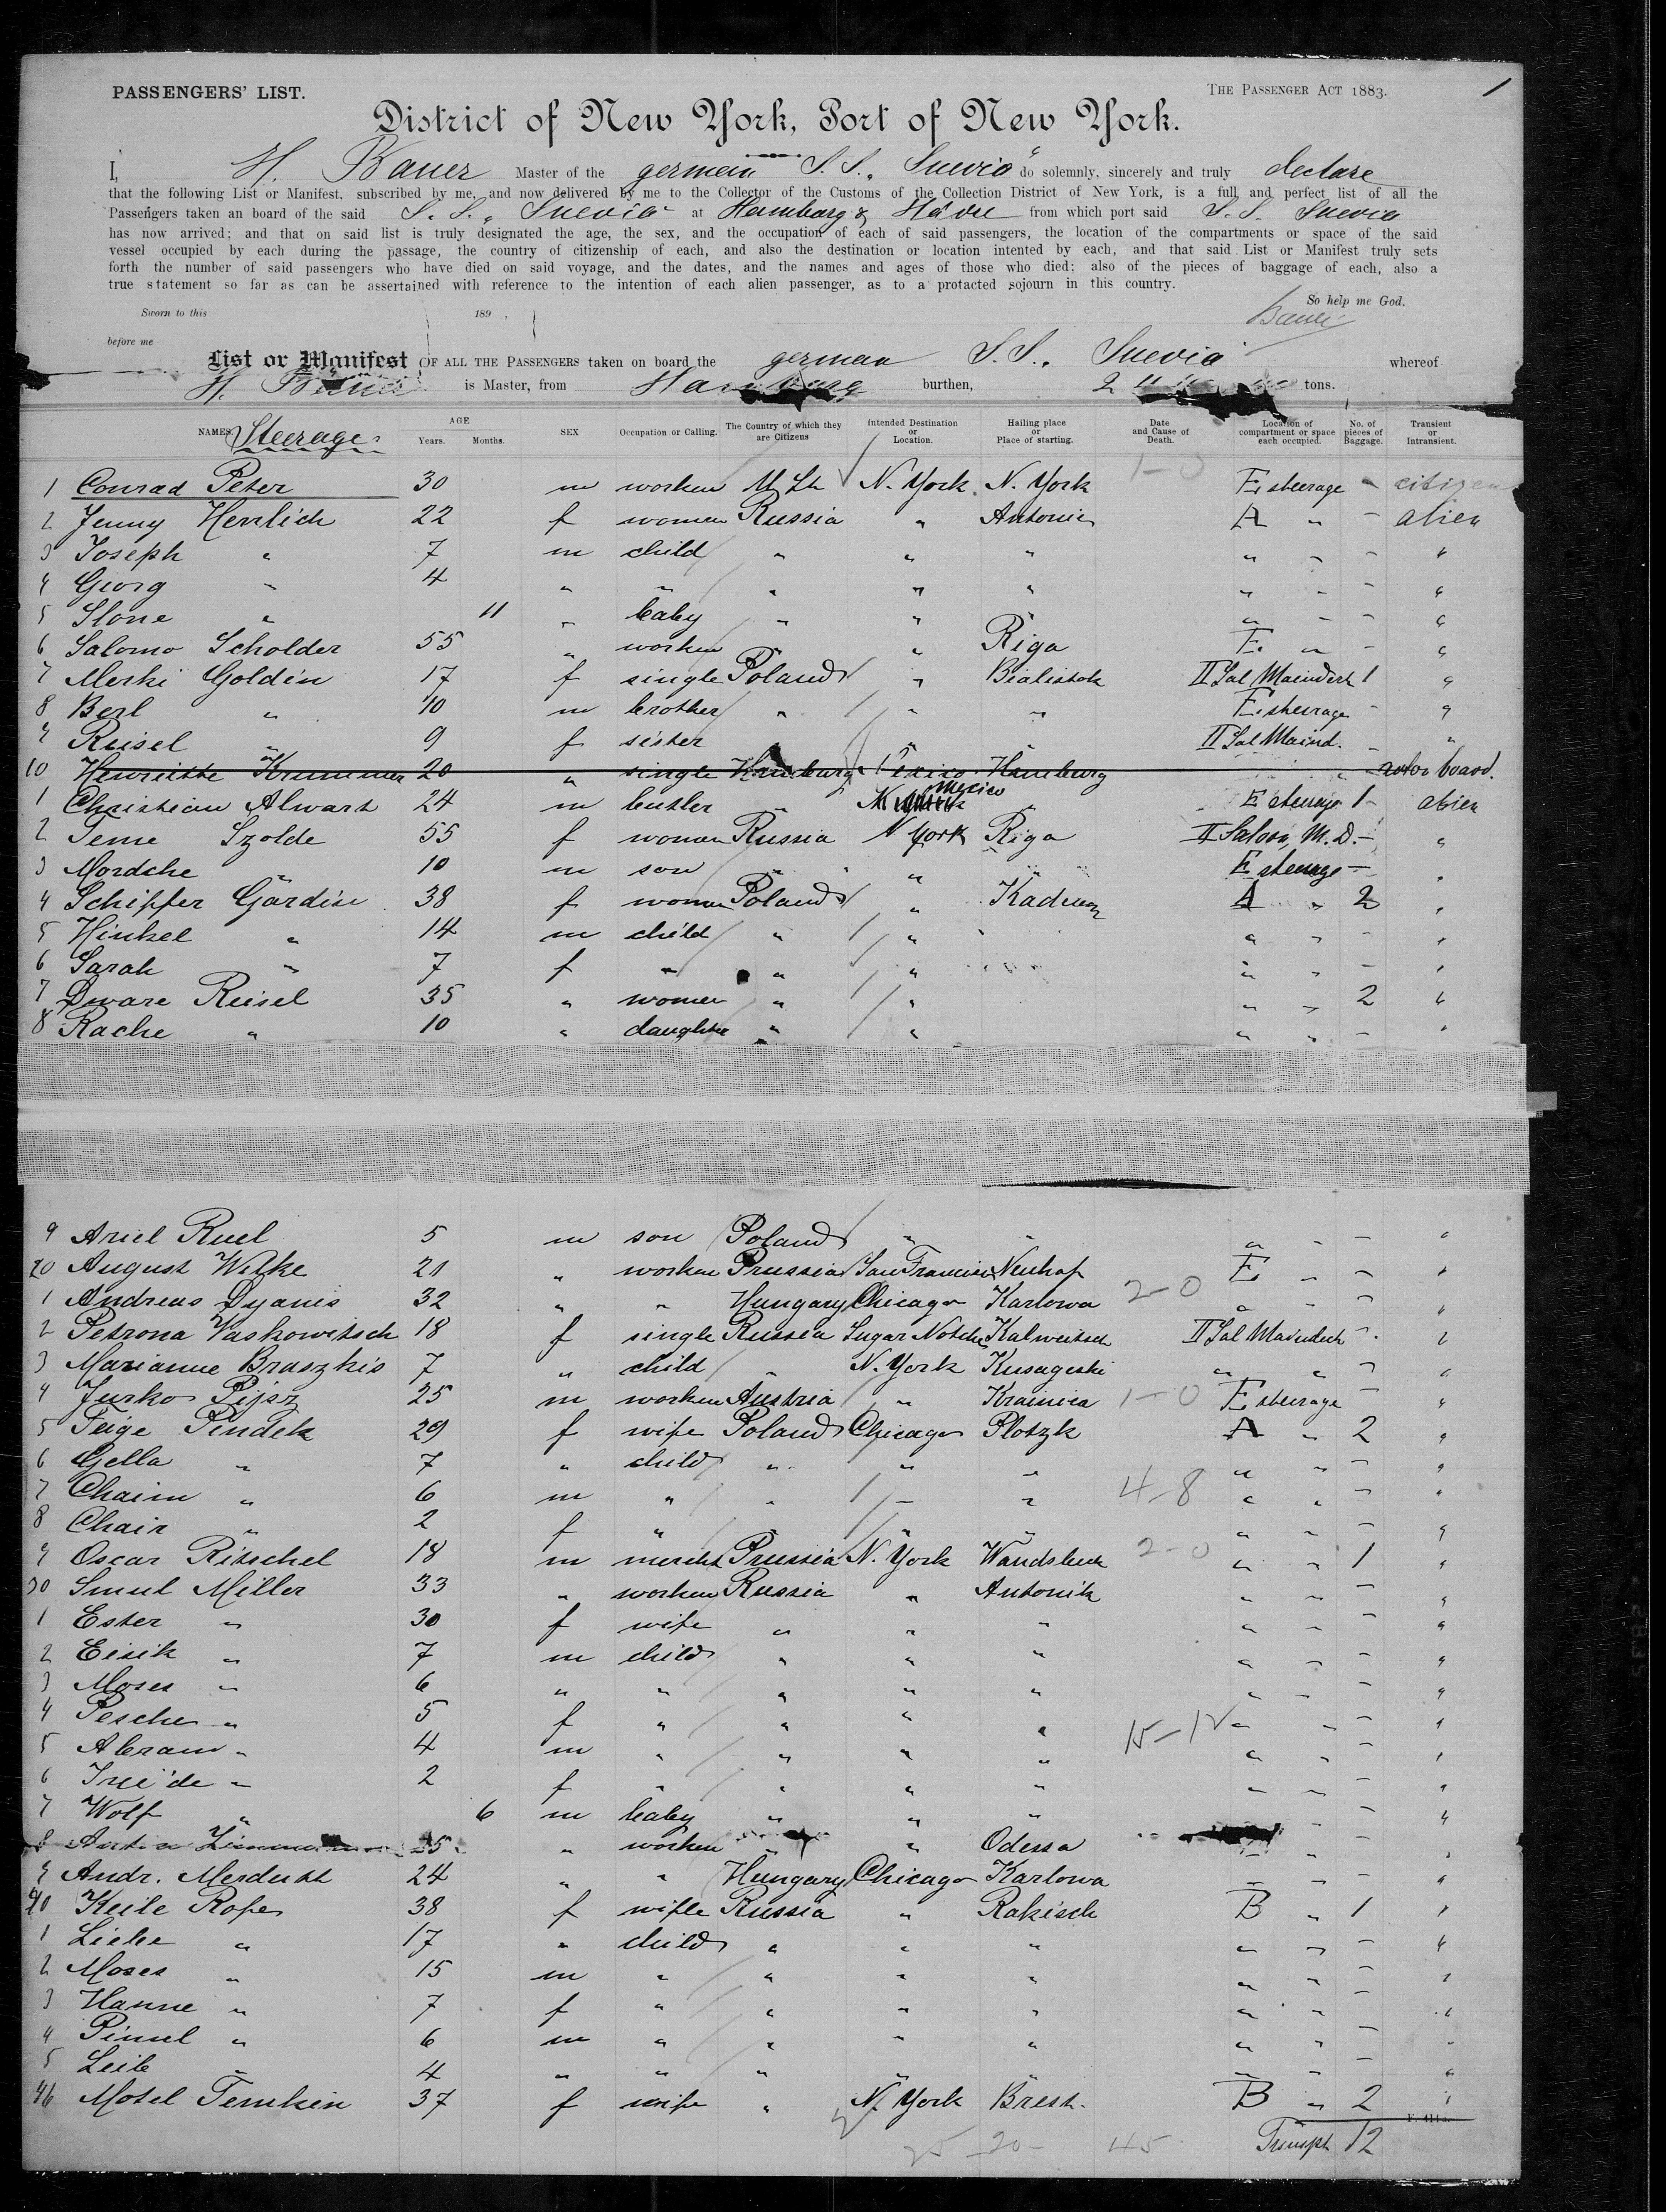 PASSENGERS' LIST.
THE PASSENGER ACT 1883.
1
District of New York, Port of New York.
I, H. Bauer Master of the german S. S. „Suevia" do solemnly, sincerely and truly declare
that the following List or Manifest, subscribed by me, and now delivered by me to the Collector of the Customs of the Collection District of New York, is a full and perfect list of all the
Passengers taken an board of the said S. S. „Suevia" at Hamburg & Havre from which port said S. S. Suevia
has now arrived; and that on said list is truly designated the age, the sex, and the occupation of each of said passengers, the location of the compartments or space of the said
vessel occupied by each during the passage, the country of citizenship of each, and also the destination or location intented by each, and that said List or Manifest truly sets
forth the number of said passengers who have died on said voyage, and the dates, and the names and ages of those who died: also of the pieces of baggage of each, also a
true statement so far as can be assertained with reference to the intention of each alien passenger, as to a protacted sojourn in this country.
So help me God.
Sworn to this 189 ,
Bauer
before me
List or Manifest OF ALL THE PASSENGERS taken on board the german S. S. „Suevia" whereof
H. Bauer is Master, from Hamburg burthen, tons.
NAMES Steerage. AGE Years. Months. SEX Occupation or Calling. The Country of which they are Citizens Intended Destination or Location. Hailing place or Place of starting. Date and Cause of Death. Location of compartment or space each occupied. No. of pieces of Baggage. Transient or Intransient.
1 Conrad Peter 30 m worker U St N. York N. York 1-0 E steerage - citizen
2 Jenny Herrlich 22 f women Russia " Antonie A " - alien
3 Joseph " 7 m child " " " " " - "
4 Georg " 4 " " " " " " " - "
5 Slone " 11 " baby " " " " " - "
6 Salomo Scholder 55 " worker " " Riga E " - "
7 Merki Goldin 17 f single Poland " Bialistok II Sal Maindeck 1 "
8 Berl " 10 m brother " " " E steerage - "
9 Reisel " 9 f sister " " " II Sal Maind. - "
10 Henriette Krummer 20 " single Hamburg Mexico Hamburg " not on board.
1 Christian Alwart 24 m butler " Mexico " E steerage 1 - alien
2 Teme Szolde 55 f women Russia N York Riga II Saloon, M. D. - "
3 Mordche " 10 m son " " " E steerage - "
4 Schipper Gordin 38 f women Poland " A " 2 "
5 Hinkel " 14 m child " " " " " - "
6 Sarah " 7 f " " " " " - "
7 Dware Reisel 35 " women " " " " 2 "
8 Rache " 10 " daughter " " " " - "
9 Ariel Ruel 5 m son Poland " " " - - "
20 August Wilke 21 " worker Prussia San Francisco Neuhof E " - "
1 Andreas Dyanis 32 " " Hungary Chicago Karlowa 2-0 " " - "
2 Petrona Waskowitsch 18 f single Russia Sugar Notch Kalweitsch II Sal Maindeck - "
3 Marianne Braszkis 7 " child " N. York Kusageski " " - "
4 Jurko Pijsz 25 m worker Austria " Krainica 1-0 E steerage - "
5 Feige Pindek 29 f wife Poland Chicago Plotzk A " 2 "
6 Gella " 7 " child " " " " " - "
7 Chaim " 6 m " " " " 4-8 " " - "
8 Chair " 2 f " " " " " " - "
9 Oscar Ritschel 18 m mercht Prussia N. York Wandsbeck 2-0 " " 1 "
30 Smul Miller 33 " worker Russia " Antonik " " - "
1 Ester " 30 f wife " " " " " - "
2 Eisik " 7 m child " " " " " - "
3 Moses " 6 " " " " " " " - "
4 Pesche " 5 f " " " " 15-1 " " - "
5 Abram " 4 m " " " " " " - "
6 " 2 f " " " " " " - "
7 Wolf " 6 m baby " " " - "
8 25 " worker " Odessa " - "
9 Andr. Merduht 24 " " Hungary Chicago Karlowa " " - "
40 Keile Rofe 38 f wife Russia " Rakisch B " 1 "
1 Liebe " 17 " child " " " " " - "
2 Moses " 15 m " " " " " " - "
3 Hanne " 7 f " " " " " " - "
4 Pinul " 6 m " " " " " " - "
5 Leib " 4 " " " " " " " - "
46 Motel Temkin 37 f wife " N. York Brest. B " 2 "
25 20- 45 12